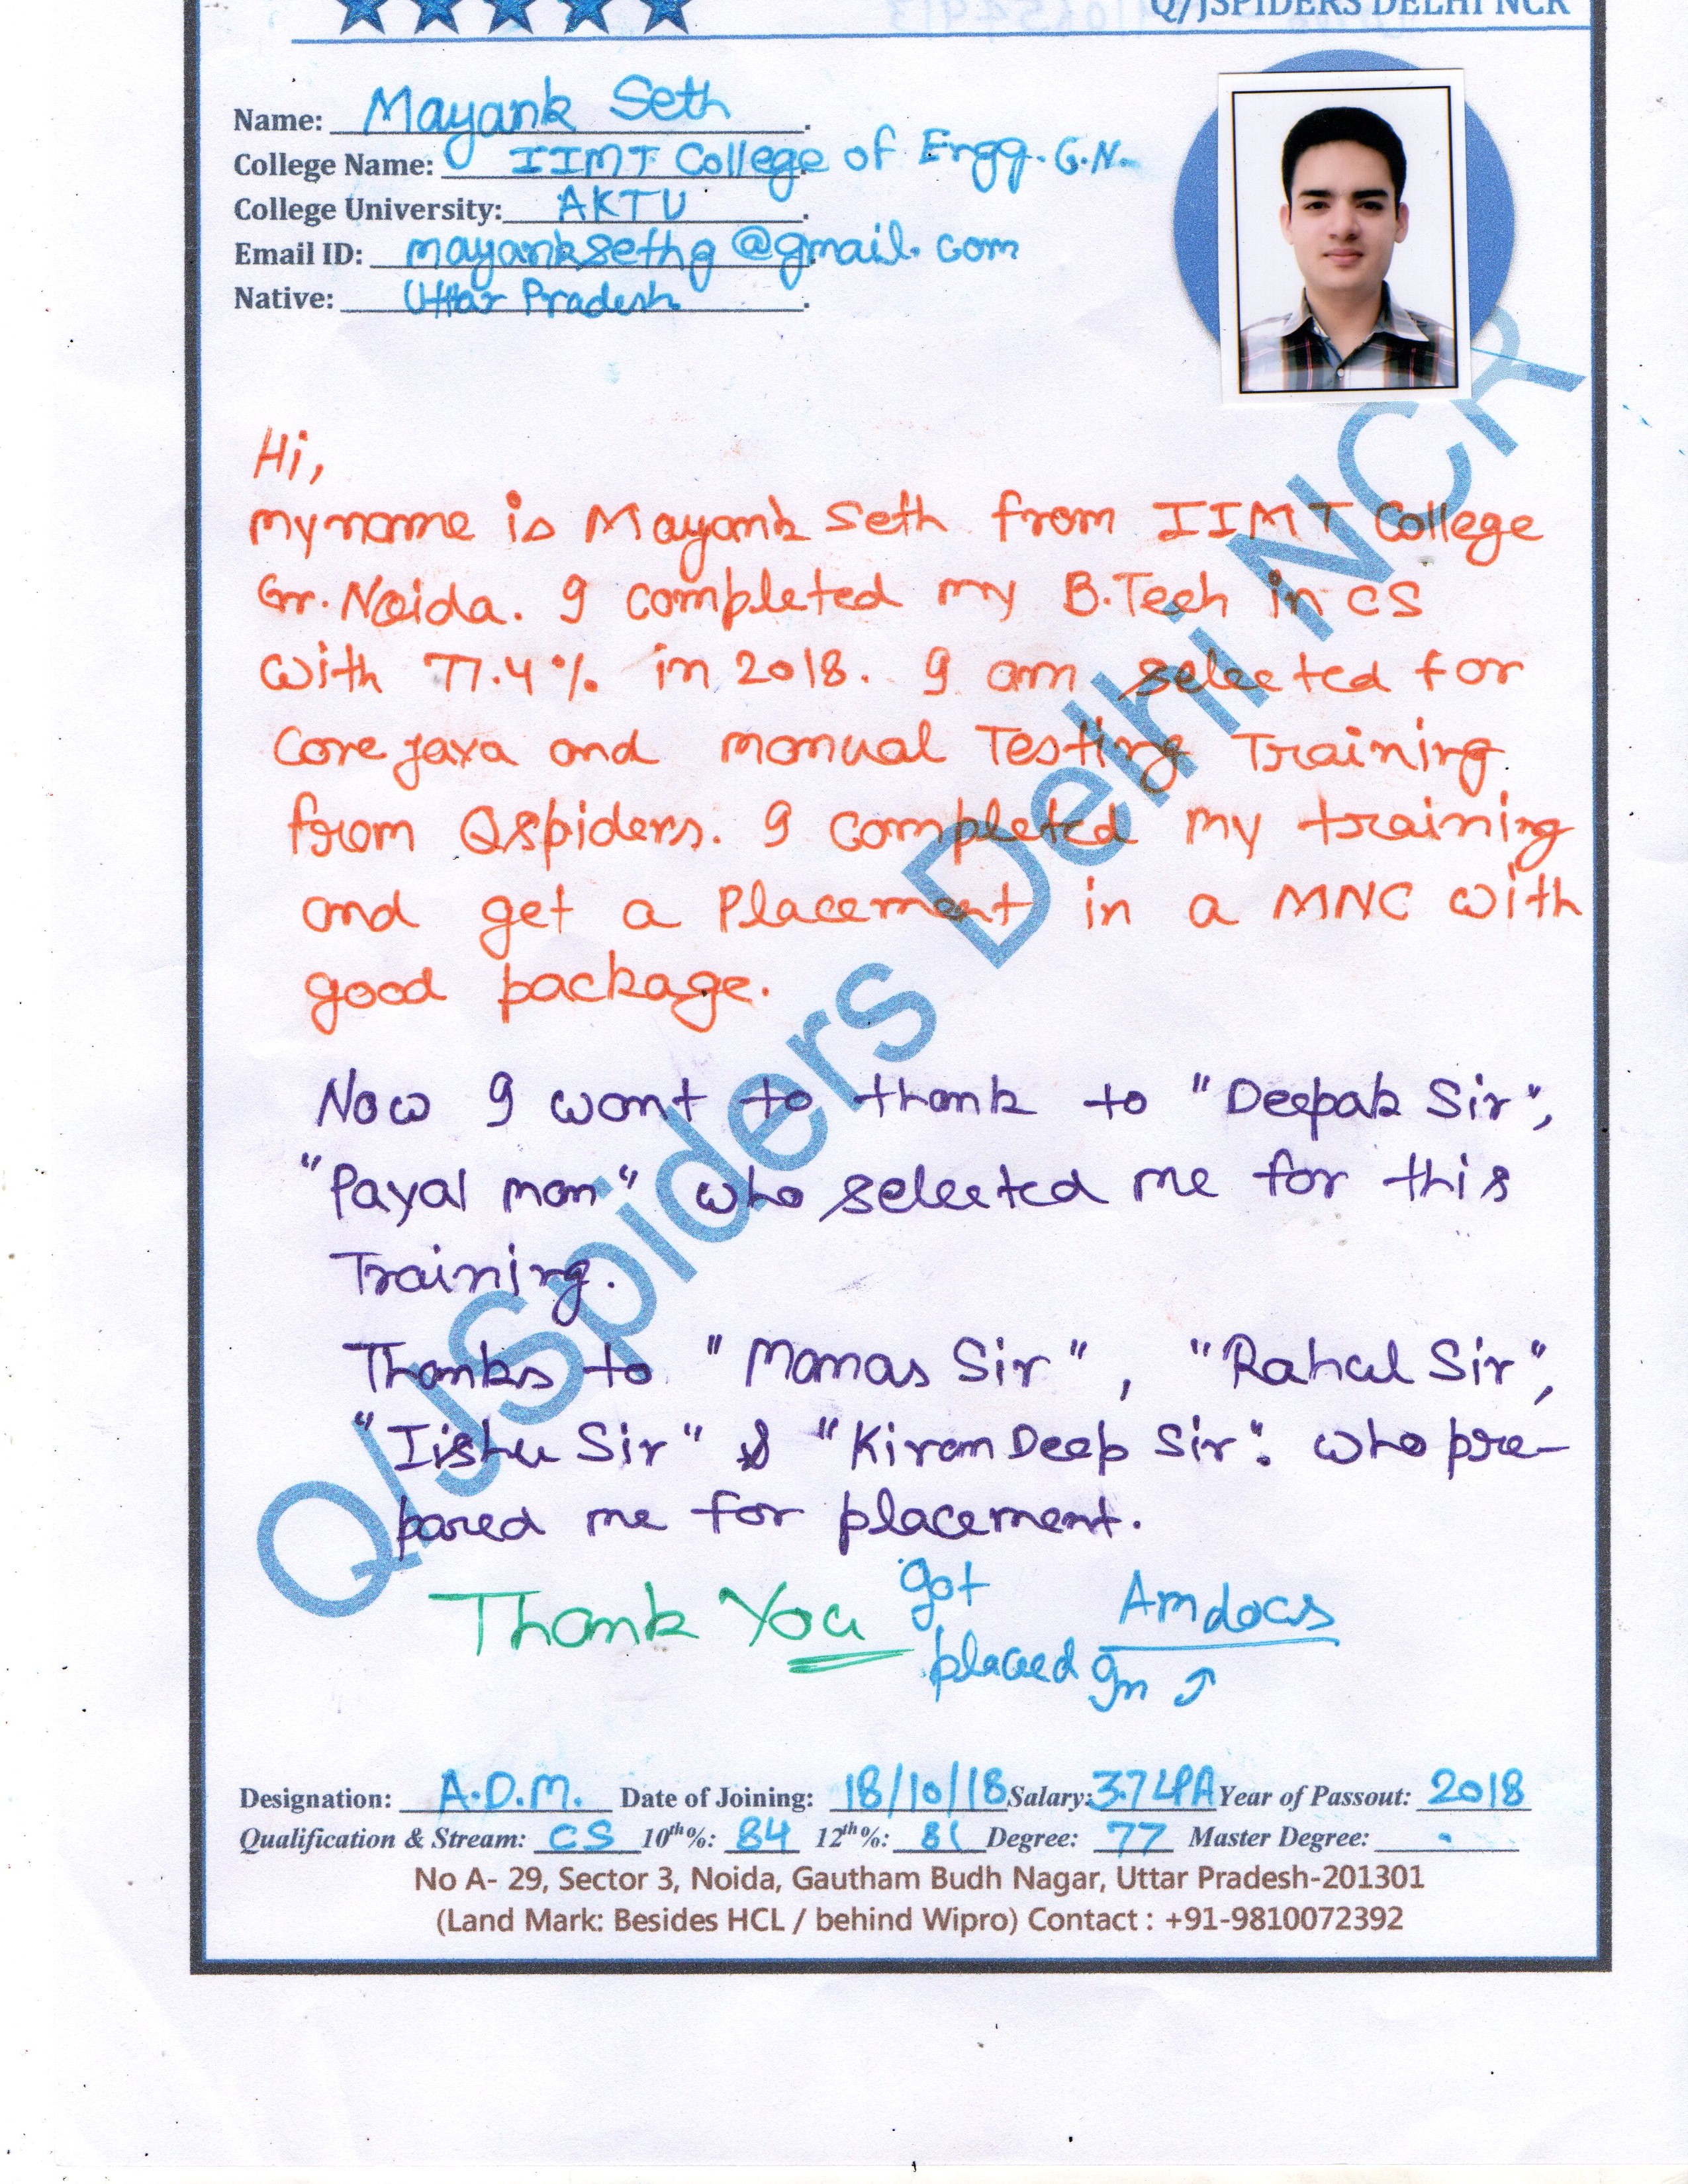 Q/JSPIDERS DELHI NCR
Name: Mayank Seth.
College Name: IIMT College of Engg. G.N.
College University: AKTU.
Email ID: mayanksethg@gmail.com
Native: Uttar Pradesh.
Hi,
my name is Mayank Seth from IIMT College
Gr. Noida. I completed my B.Tech in CS
with 77.4% in 2018. I am selected for
Core java and manual Testing Training
from Qspiders. I completed my training
and get a Placement in a MNC with
good package.
Now I want to thank to "Deepak Sir",
"Payal mam" who selected me for this
Training.
Thanks to "Manas Sir", "Rahul Sir",
"Iishu Sir" & "Kiran Deep Sir". who pre-
pared me for placement.
Thank You got placed In Amdocs
Designation: A.D.M. Date of Joining: 18/10/18 Salary: 3.74PA Year of Passout: 2018
Qualification & Stream: CS 10th%: 84 12th%: 81 Degree: 77 Master Degree: .
No A- 29, Sector 3, Noida, Gautham Budh Nagar, Uttar Pradesh-201301
(Land Mark: Besides HCL / behind Wipro) Contact : +91-9810072392
Q/JSpiders Delhi NCR